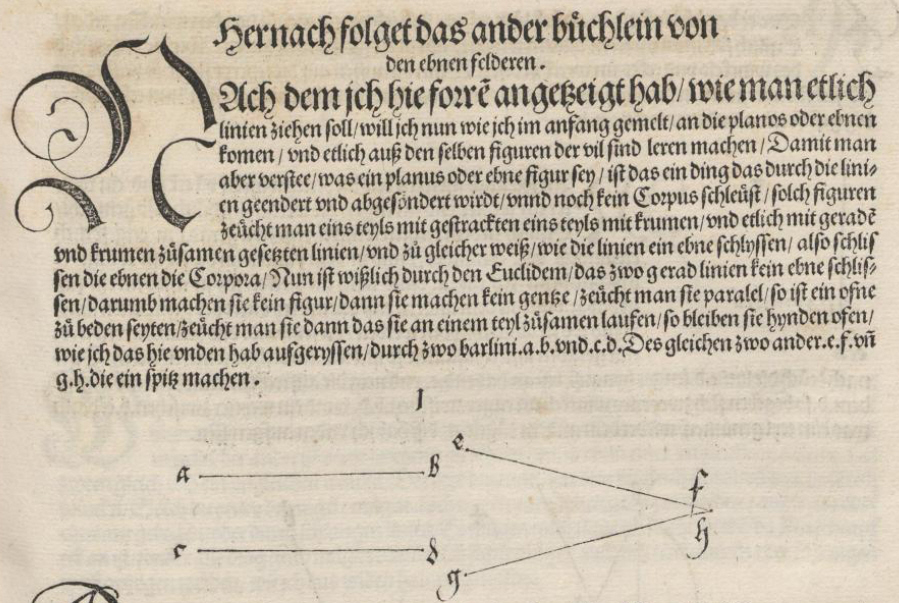 Hernach folget das ander büchlein von
den ebnen felderen.
NAch dem jch hie forrē angetzeigt hab/ wie man etlich
linien ziehen soll/ will jch nun wie jch im anfang gemelt/ an die planos oder ebnen
komen/ vnd etlich auß den selben figuren der vil sind leren machen/ Damit man
aber verstee/ was ein planus oder ebne figur sey/ ist das ein ding das durch die lini-
en geendert vnd abgesöndert wirdt/ vnnd noch kein Corpus schleüst/ solch figuren
zeücht man eins teyls mit gestrackten eins teyls mit krumen/ vnd etlich mit geradē
vnd krumen züsamen gesetzten linien/ vnd zü gleicher weiß/ wie die linien ein ebne schlyssen/ also schlis
sen die ebnen die Corpora/ Nun ist wißlich durch den Euclidem/ das zwo gerad linien kein ebne schlis-
sen/ darumb machen sie kein figur/ dann sie machen kein gentze/ zeücht man sie paralel/ so ist ein ofne
zü beden seyten/ zeücht man sie dann das sie an einem teyl züsamen laufen/ so bleiben sie hynden ofen/
wie jch das hie vnden hab aufgeryssen/ durch zwo barlini.a.b.vnd.c.d. Des gleichen zwo ander.e.f.vñ
g.h.die ein spitz machen.
1
e
a b
f
h
c d
g